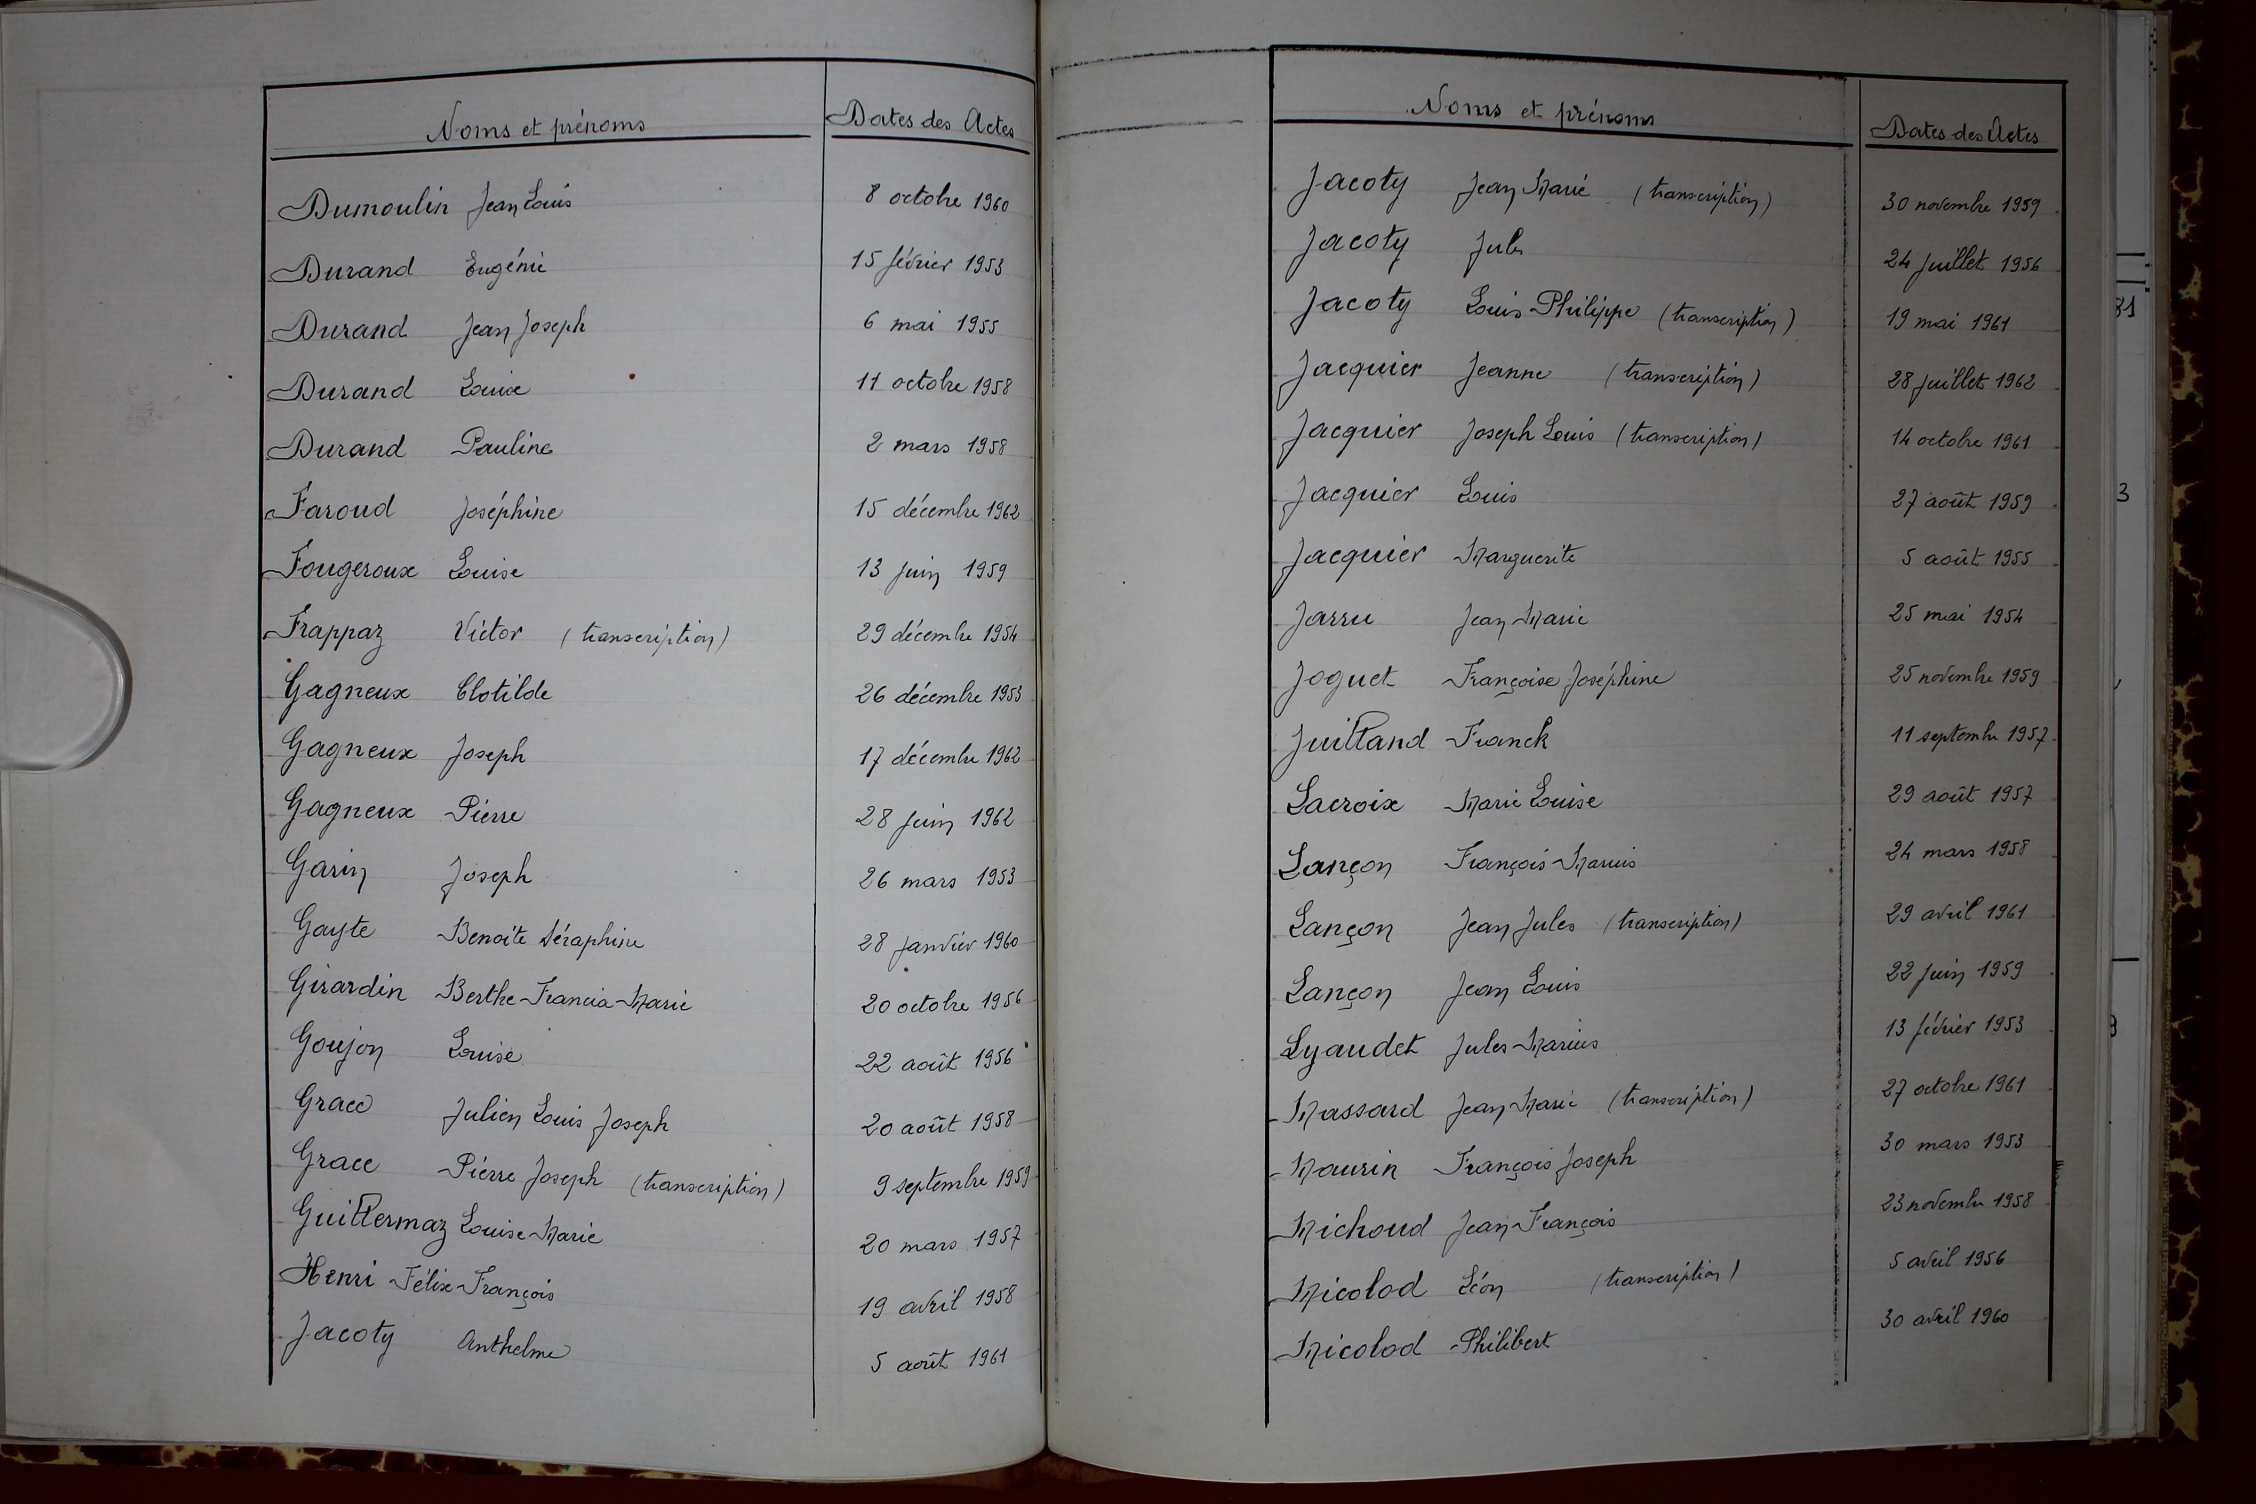 Noms et prénoms Dates des Actes
Dumoulin Jean Louis 8 octobre 1960
Durand Eugénie 15 février 1953
Durand Jean Joseph 6 mai 1955
Durand Louise 11 octobre 1958
Durand Pauline 2 mars 1958
Faroud Joséphine 15 décembre 1962
Fougeroux Louise 13 juin 1959
Frappaz Victor (transcription) 29 décembre 1954
Gagneux Clotilde 26 décembre 1953
Gagneux Joseph 17 décembre 1962
Gagneux Pierre 28 juin 1962
Garin Joseph 26 mars 1953
Gayte Benoîte Séraphine 28 janvier 1960
Girardin Berthe-Francia-Marie 20 octobre 1956
Goujon Louise 22 août 1956
Grace Julien Louis Joseph 20 août 1958
Grace Pierre Joseph (transcription) 9 septembre 1959
Guillermaz Louise-Marie 20 mars 1957
Henri Félix-François 19 avril 1958
Jacoty Anthelme 5 août 1961
Noms et prénoms Dates des Actes
Jacoty Jean Marie (transcription) 30 novembre 1959
Jacoty Jules 24 juillet 1956
Jacoty Louis-Philippe (transcription) 19 mai 1961
Jacquier Jeanne (transcription) 28 juillet 1962
Jacquier Joseph Louis (transcription) 14 octobre 1961
Jacquier Louis 27 août 1959
Jacquier Marguerite 5 août 1955
Jarru Jean-Marie 25 mai 1954
Joguet Françoise Joséphine 25 novembre 1959
Juilland Franck 11 septembre 1957
Lacroix Marie Louise 29 août 1957
Lançon François-Marius 24 mars 1958
Lançon Jean Jules (transcription) 29 avril 1961
Lançon Jean Louis 22 juin 1959
Lyaudet Jules-Marius 13 février 1953
Massard Jean-Marie (transcription) 27 octobre 1961
Maurin François Joseph 30 mars 1953
Michoud Jean-François 23 novembre 1958
Nicolod Léon (transcription) 5 avril 1956
Nicolod Philibert 30 avril 1960
81
3